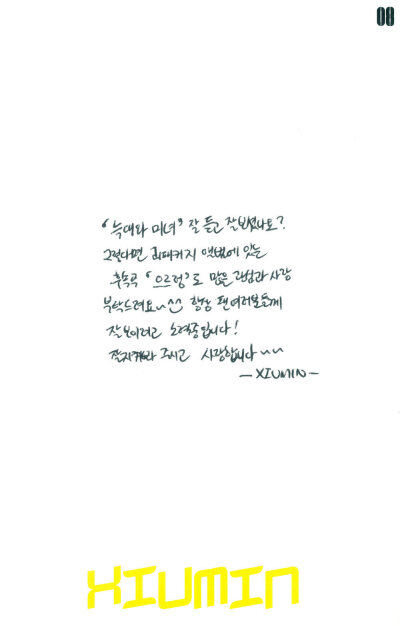 08
'늑대와 미녀' 잘 듣고 잘보셨나요?
그렇다면 리패키지 앨범에 있는
후속곡 '으르렁'도 많은 관심과 사랑
부탁드려요~^^ 항상 팬여러분들께
잘보이려고 노력중입니다!
잘지켜봐 주시고 사랑합니다~~
- XIUMIN -
XIUMIN